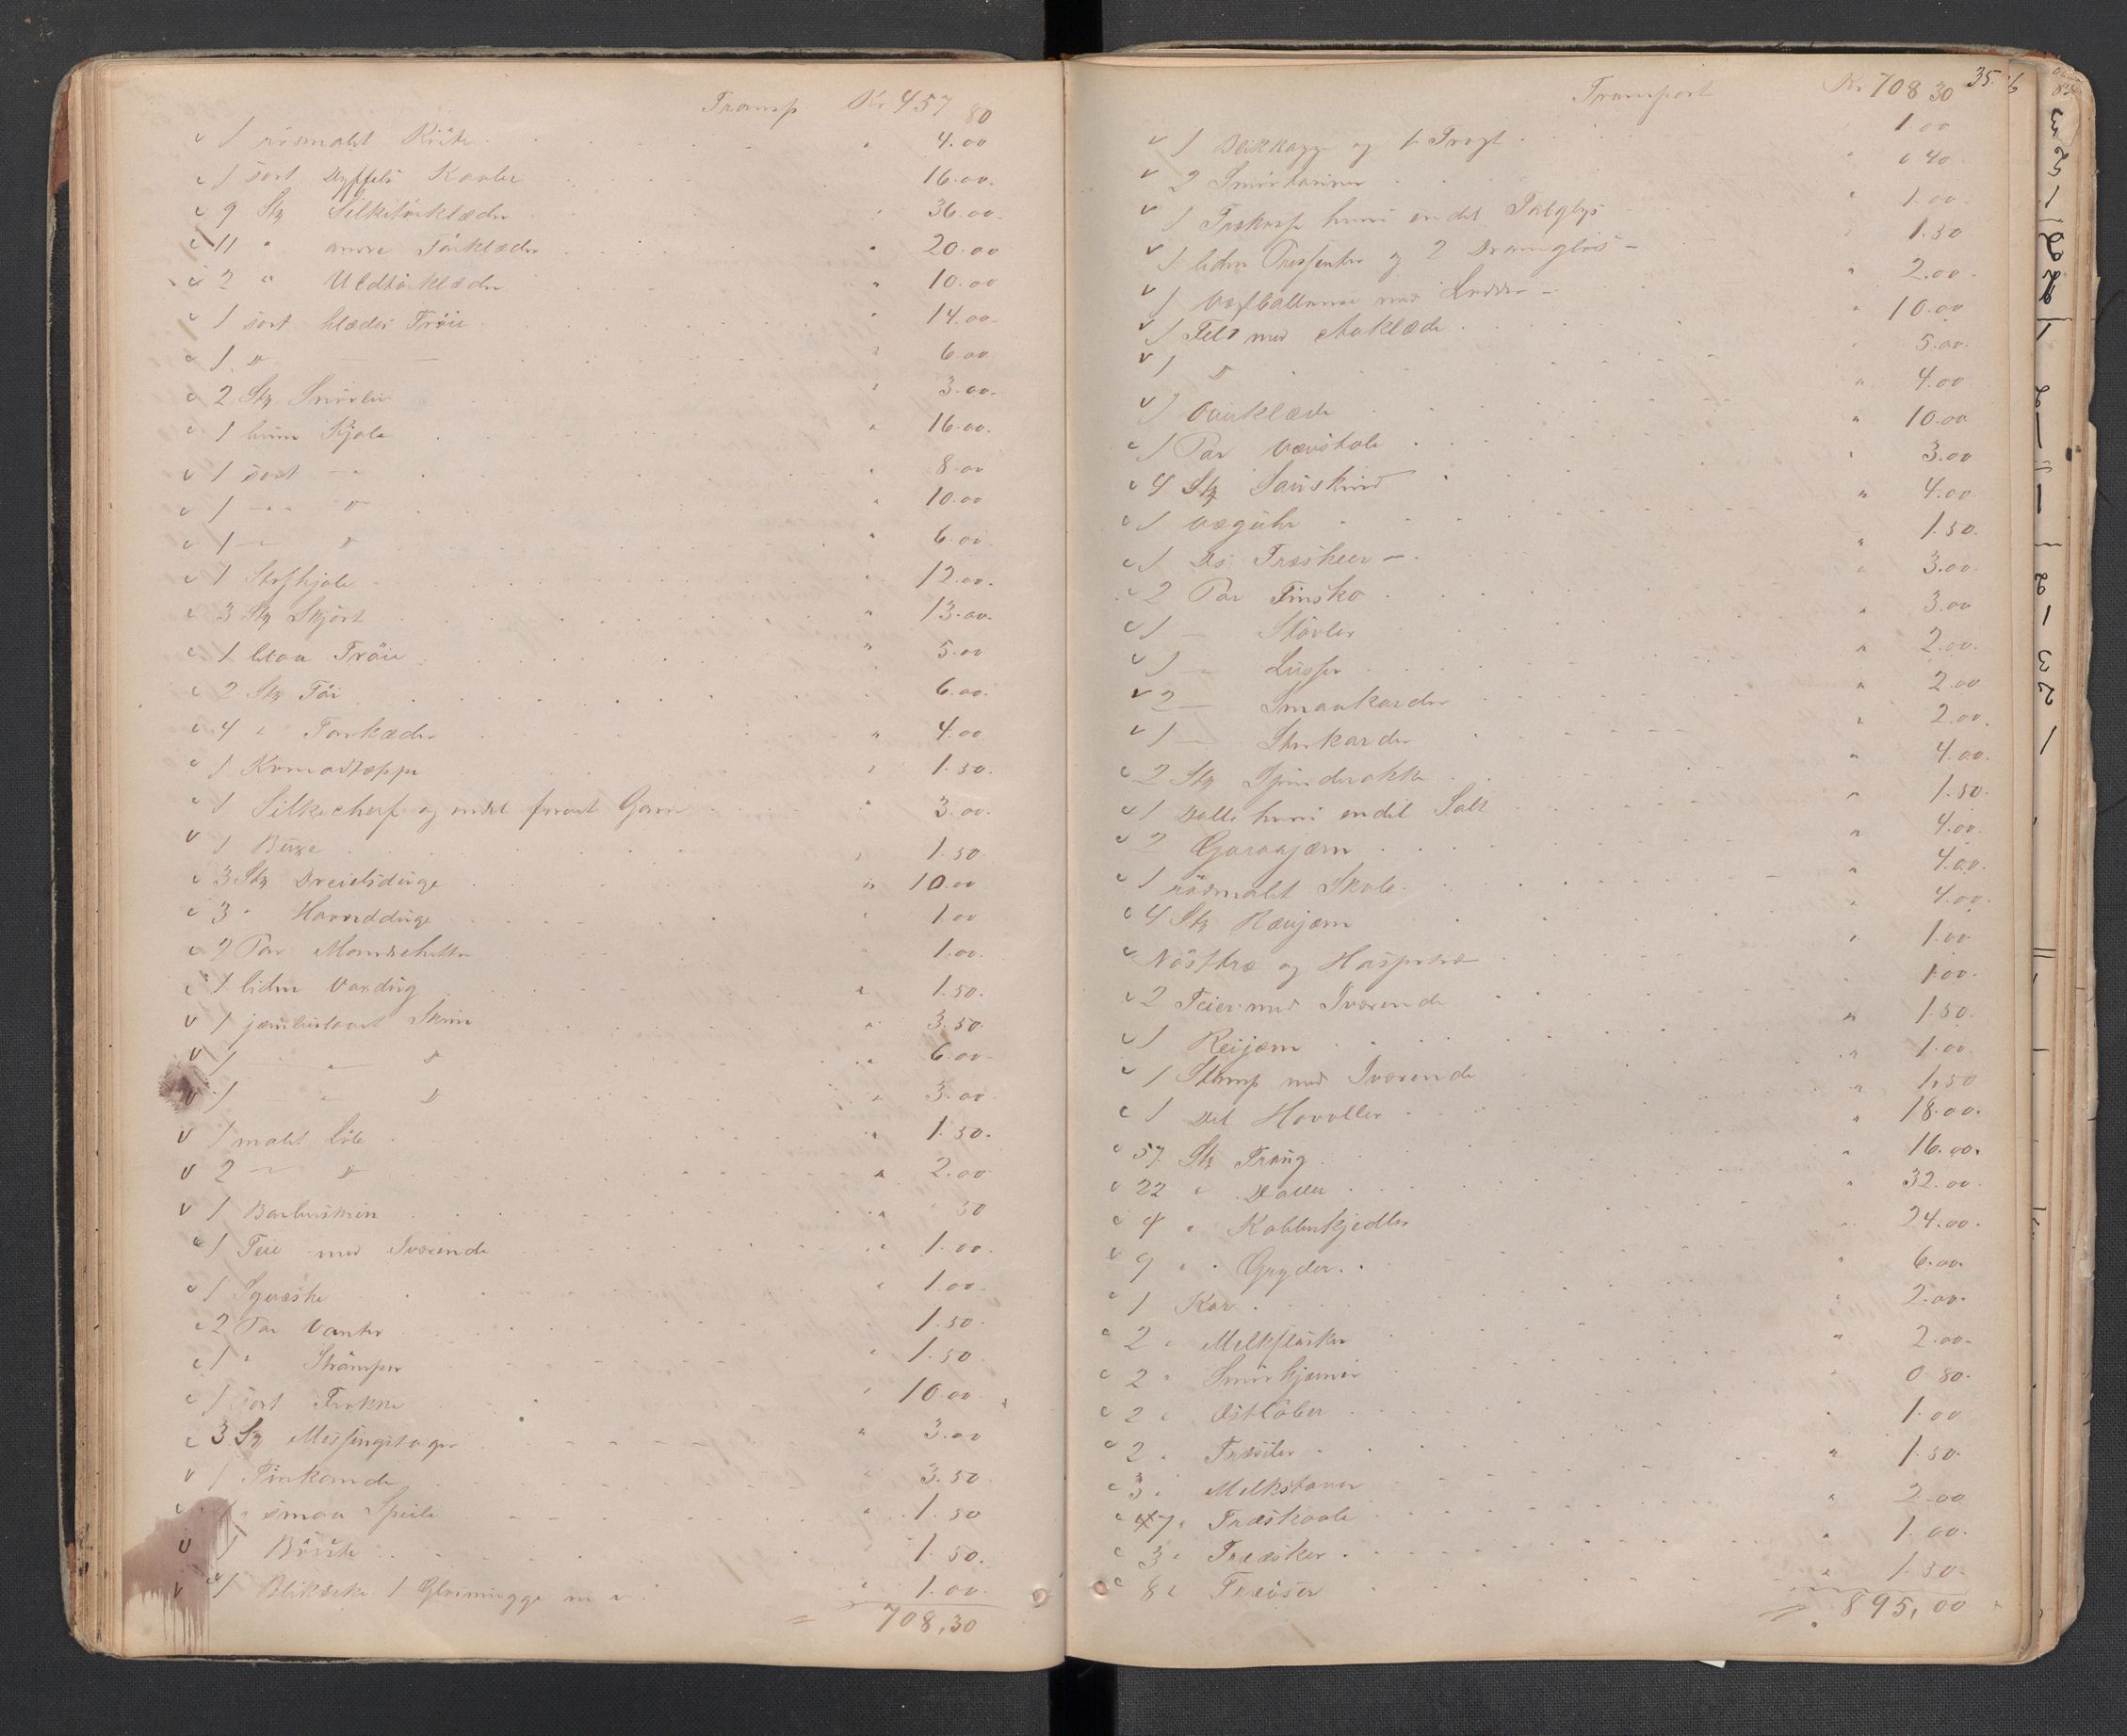 Transp. Kr 457 80
1 rösmalt Kiste 4.00
1 sort Dyffels Kaabe 16.00
9 Stk Silketörklæder 36.00
11 " andre Törklæder 20.00
2 " Uldtörklæder 10.00
1 sort klædes Tröie 14.00
1 D 6.00
2 Stk Snörliv 3.00
1 brun Kjole 16.00
1 sort — 8.00
1 — D 10.00
1 — D 6.00
1 Stofkjole 12.00
3 Stk Skjört 13.00
1 blaa Tröie 5.00
2 Stk Töi 6.00
4 " Forklæder 4.00
1 Komodteppe 1.50
1 Silkecherf og endel farvet Garn 3.00
1 Buxe 1.50
3 Stk Dreielsduge 10.00
3 " Hovedduge 1.00
2 Par Mandschetter 1.00
1 liden Vandug 1.50
1 jernbeslaaet Skrin 3.50
1 — D 6.00
1 — D 3.00
1 malet Löb 1.50
2 — D 2.00
1 Barberskrin 50
1 Teie med Iværende 1.00
1 1.00
2 Par Vanter 1.50
1 " Strömper 1.50
1 sort Frakke 10.00
3 Stk Messingstager 3.00
1 Tinkande 3.50
" smaa Speile 1.50
1 Börste 1.50
1 Blikæske 1 Glasmugge m v 1.00
708,30
Transport Kr 708 30
35.
1 Bakkagge og 1 Tragt 1.00
2 0 40
1 Trækorf hvori endel Talglys 1.00
1 liden Præsenter og 2 Dramglas 1.50
1 Vegtballance med Lodder 2.00
1 Feld med Aaklæde 10.00
1 D 5.00
1 Aaaklæde 4.00
1 Par Vævstole 10.00
4 Stk Saueskind 3.00
1 Væguhr 4.00
1 Ds. Træskeer 1.50
2 Par Finsko 3.00
1 — Stövler 3.00
1 — Lusser 2.00
2 — Smaakarder 2.00
1 — Storkarder 2.00
2 Stk Spinderokke 4.00
1 Dalle hvori endel Salt 1.50
2 Goraajern 4.00
1 rösmalet Skole 4.00
4 Stk Ræujern 4.00
Nösttræ og Haspetræ 1.00
2 Teier med Iværende 1.00
1 Reijern 1.50
1 Stamp med Iværende 1.00
1 Del Hovoller 1,50
57 Stk Traug 18.00
22 " Daller 16.00
4 " Kobberkjedler 32.00
9 " Gryder 24.00
1 Kar 6.00
2 " Melkflasker 2.00
2 " Smörkjerner 2.00
2 " Ostlöber 0 80
2 " Træsiler 1.00
3 " Melkstavar 1.50
7 " Træskaale 2.00
3 " Trææsker 1.00
8 " 1.50
895,00